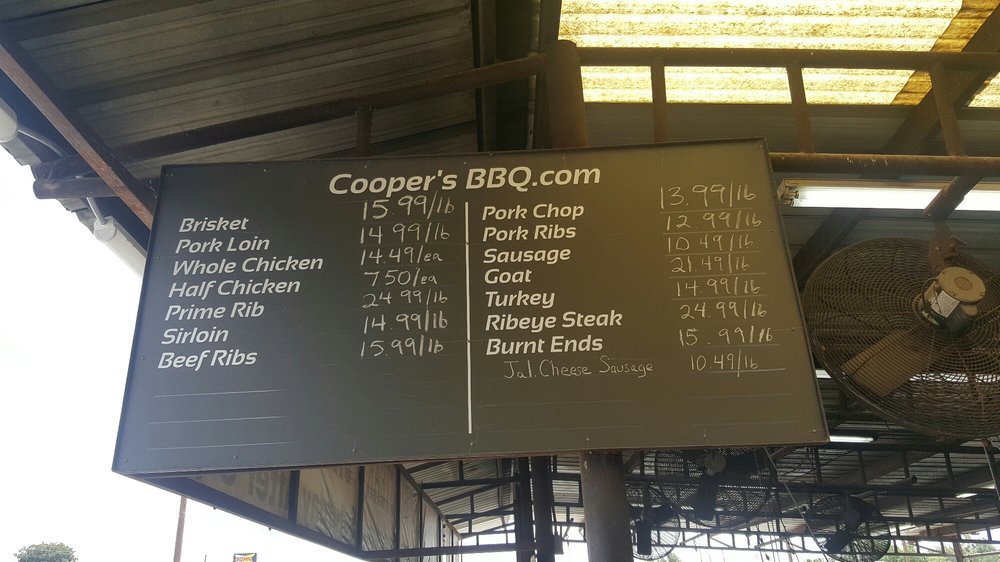 Cooper's BBQ.com
Brisket 15.99/lb
Pork Loin 14.99/lb
Whole Chicken 14.49/ea
Half Chicken 7.50/ea
Prime Rib 24.99/lb
Sirloin 14.99/lb
Beef Ribs 15.99/lb
Pork Chop 13.99/lb
Pork Ribs 12.99/lb
Sausage 10.49/lb
Goat 21.49/lb
Turkey 14.99/lb
Ribeye Steak 24.99/lb
Burnt Ends 15.99/lb
Jal. Cheese Sausage 10.49/lb